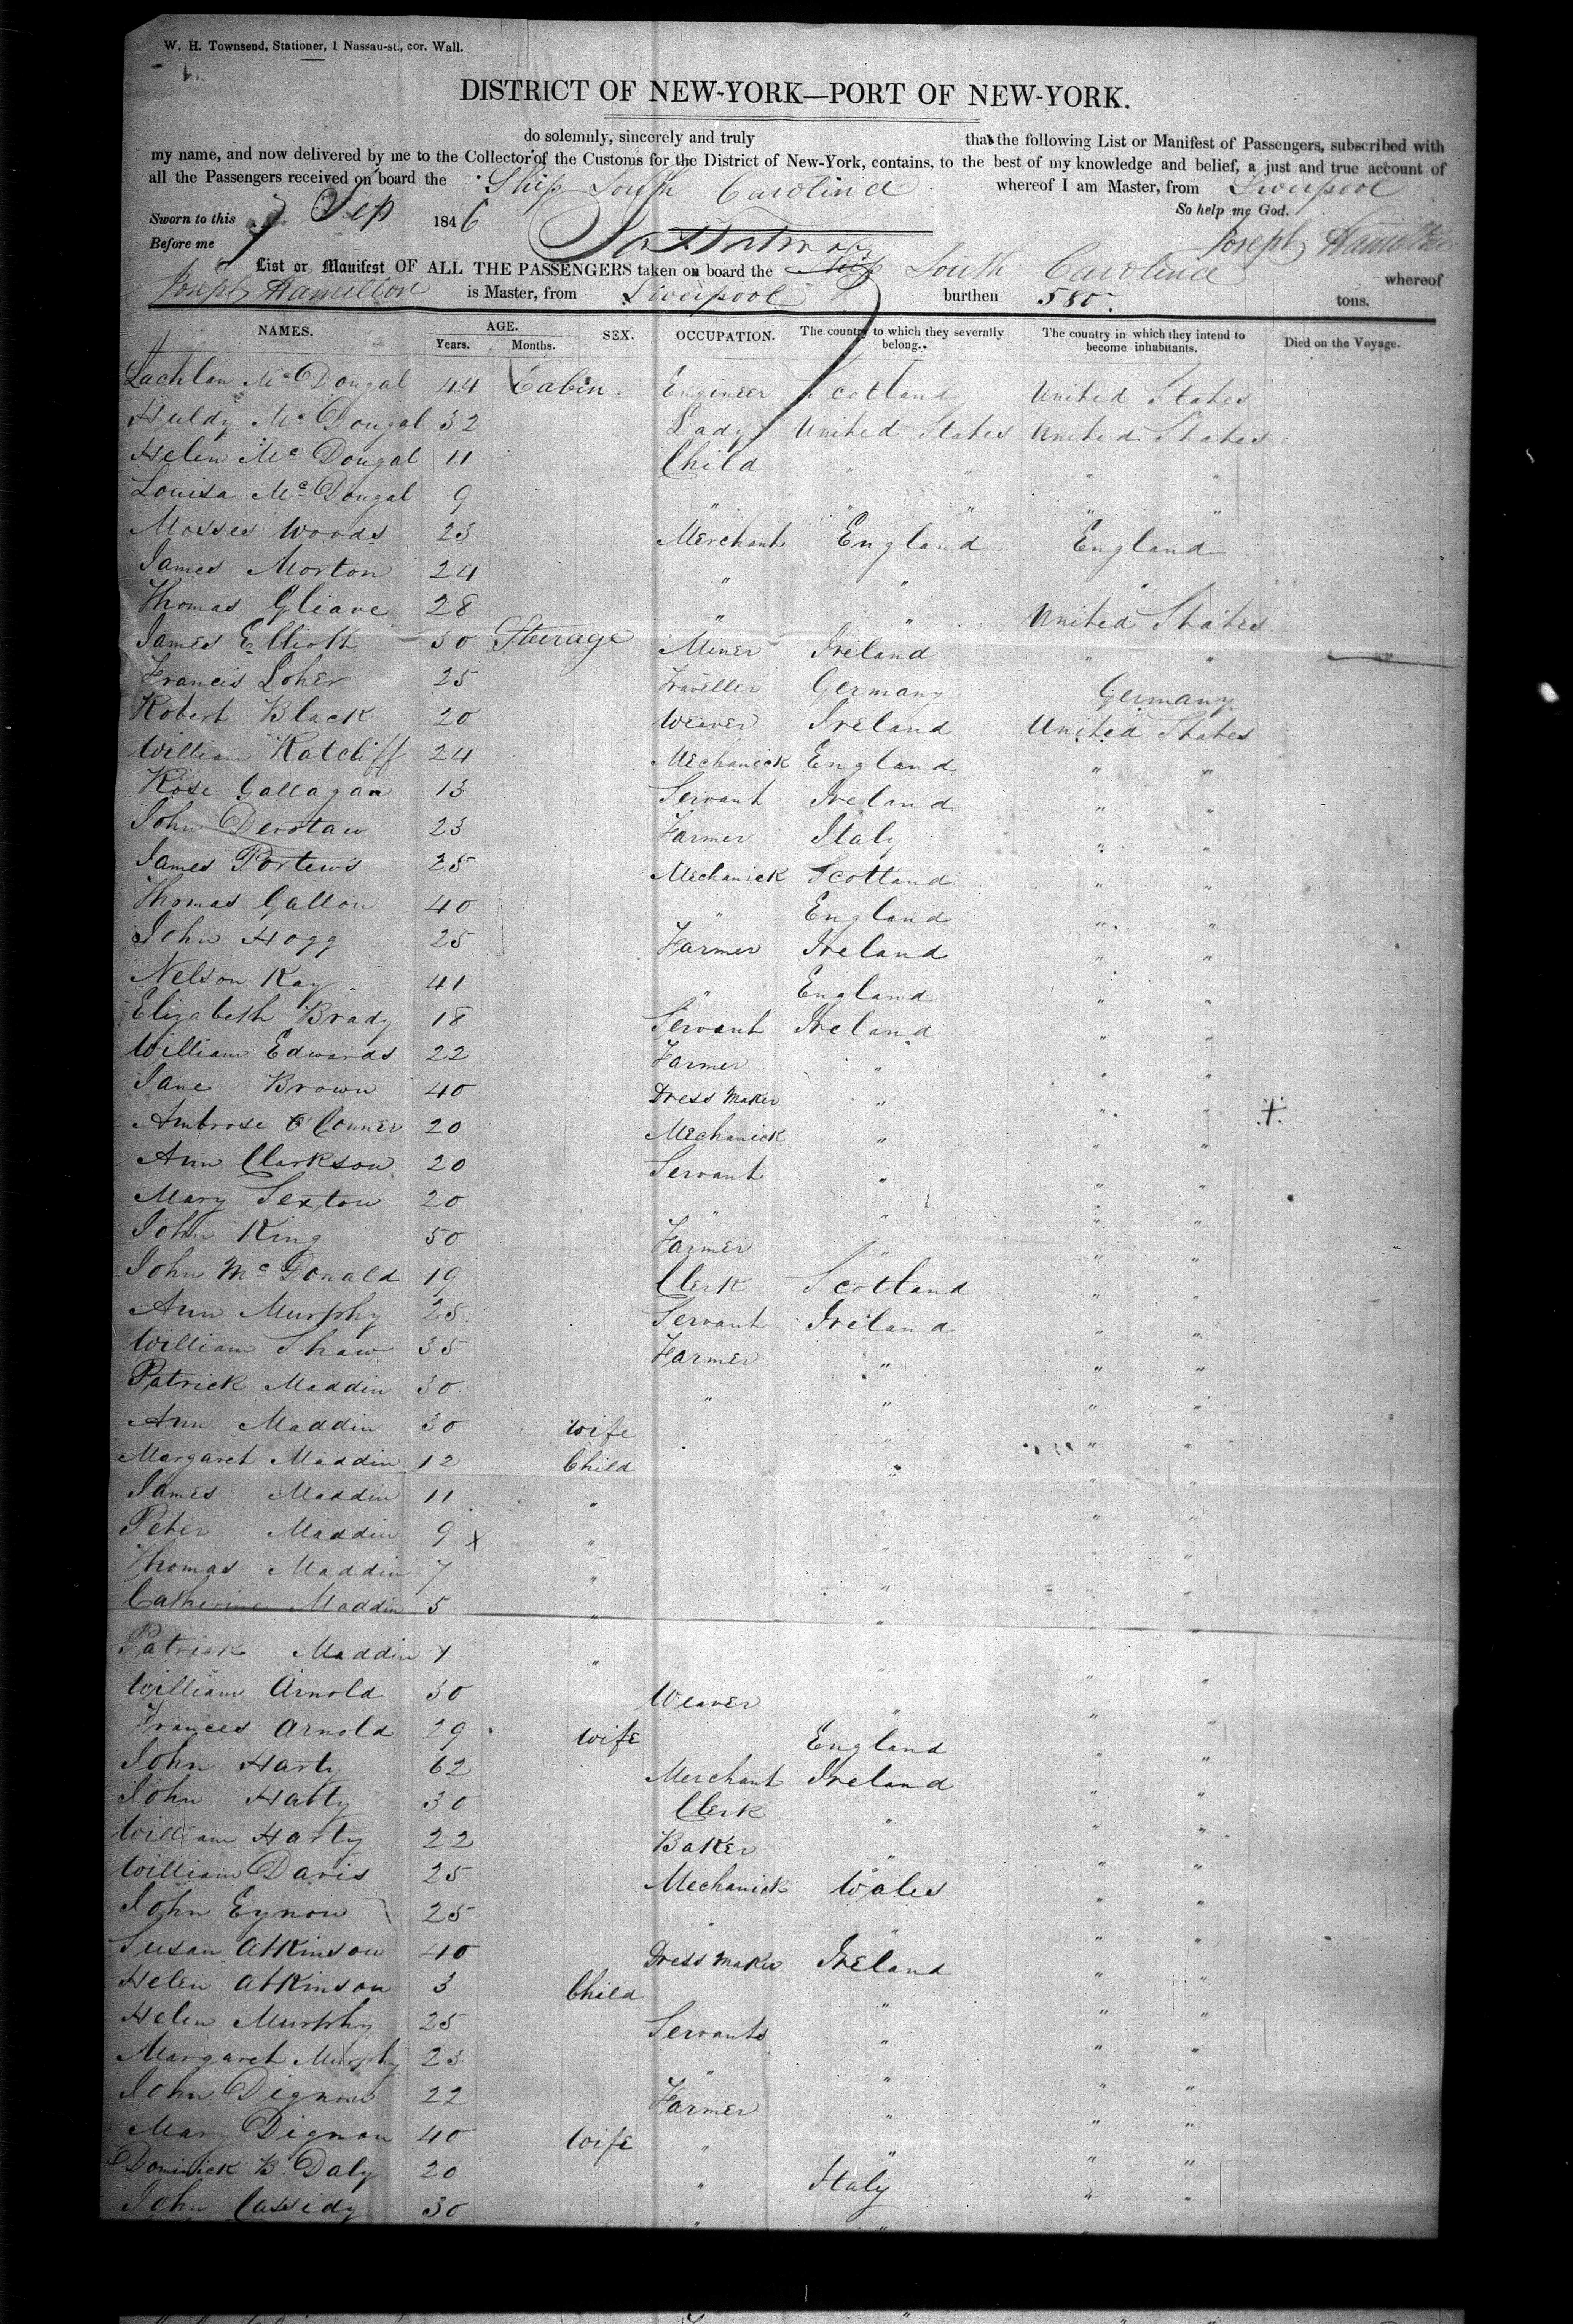 W. H. Townsend, Stationer, 1 Nassau-st., cor. Wall.
DISTRICT OF NEW-YORK—PORT OF NEW-YORK.
do solemnly, sincerely and truly that the following List or Manifest of Passengers, subscribed with
my name, and now delivered by me to the Collector of the Customs for the District of New-York, contains, to the best of my knowledge and belief, a just and true account of
all the Passengers received on board the Ship South Carolina whereof I am Master, from Liverpool
Sworn to this 7 Sep 1846 So help me God.
Before me Joseph Hamilton
List or Manifest OF ALL THE PASSENGERS taken on board the Ship South Carolina whereof
Joseph Hamilton is Master, from Liverpool burthen 580. tons.
NAMES. AGE. Years. Months. SEX. OCCUPATION. The country to which they severally belong. The country in which they intend to become inhabitants. Died on the Voyage.
Lachlan McDougal 44 Cabin Engineer Scotland United States
Huldy McDougal 32 Lady United States United States
Helen McDougal 11 Child " " " "
Louisa McDougal 9 " " " " "
Mosses Woods 23 Merchant England England
James Morton 24 " " "
Thomas Gleave 28 " " United States
James Elliott 30 Steerage Miner Ireland " "
Francis Loher 25 Traveller Germany Germany
Robert Black 20 Weaver Ireland United States
William Ratcliff 24 Mechanick England " "
Rose Gallagan 13 Servant Ireland " "
John Devotaw 23 Farmer Italy " "
James Portews 25 Mechanick Scotland " "
Thomas Gallon 40 " England " "
John Hogg 25 Farmer Ireland " "
Nelson Kay 41 " England " "
Elizabeth Brady 18 Servant Ireland " "
William Edwards 22 Farmer " " "
Jane Brown 40 Dress Maker " " " +
Ambrose O Conner 20 Mechanick " " "
Ann Clarkson 20 Servant " " "
Mary Sexton 20 " " " "
John King 50 Farmer " " "
John McDonald 19 Clerk Scotland " "
Ann Murphy 25 Servant Ireland " "
William Shaw 35 Farmer " " "
Patrick Maddin 30 " " " "
Ann Maddin 30 Wife " " "
Margaret Maddin 12 Child " " "
James Maddin 11 " " " "
Peter Maddin 9 x " " " "
Thomas Maddin 7 " " " "
Catherine Maddin 5 " " " "
Patrick Maddin " " " "
William Arnold 30 Weaver " " "
Frances Arnold 29 Wife England " "
John Harty 62 Merchant Ireland " "
John Harty 30 Clerk " " "
William Harty 22 Baker " " "
William Davis 25 Mechanick Wales " "
John Eynow 25 " " " "
Susan Atkinson 40 Dress Maker Ireland " "
Helen Atkinson 3 Child " " "
Helen Murphy 25 Servants " " "
Margaret Murphy 23 " " " "
John Dignan 22 Farmer " " "
Mary Dignan 40 Wife " " " "
Dominick B. Daly 20 " Italy " "
John Cassidy 30 " "